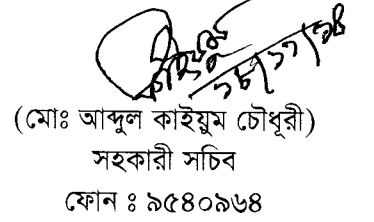 ১৮/১১/১৪
(মোঃ আব্দুল কাইয়ুম চৌধূরী)
সহকারী সচিব
ফোন ঃ ৯৫৪০৯৬৪